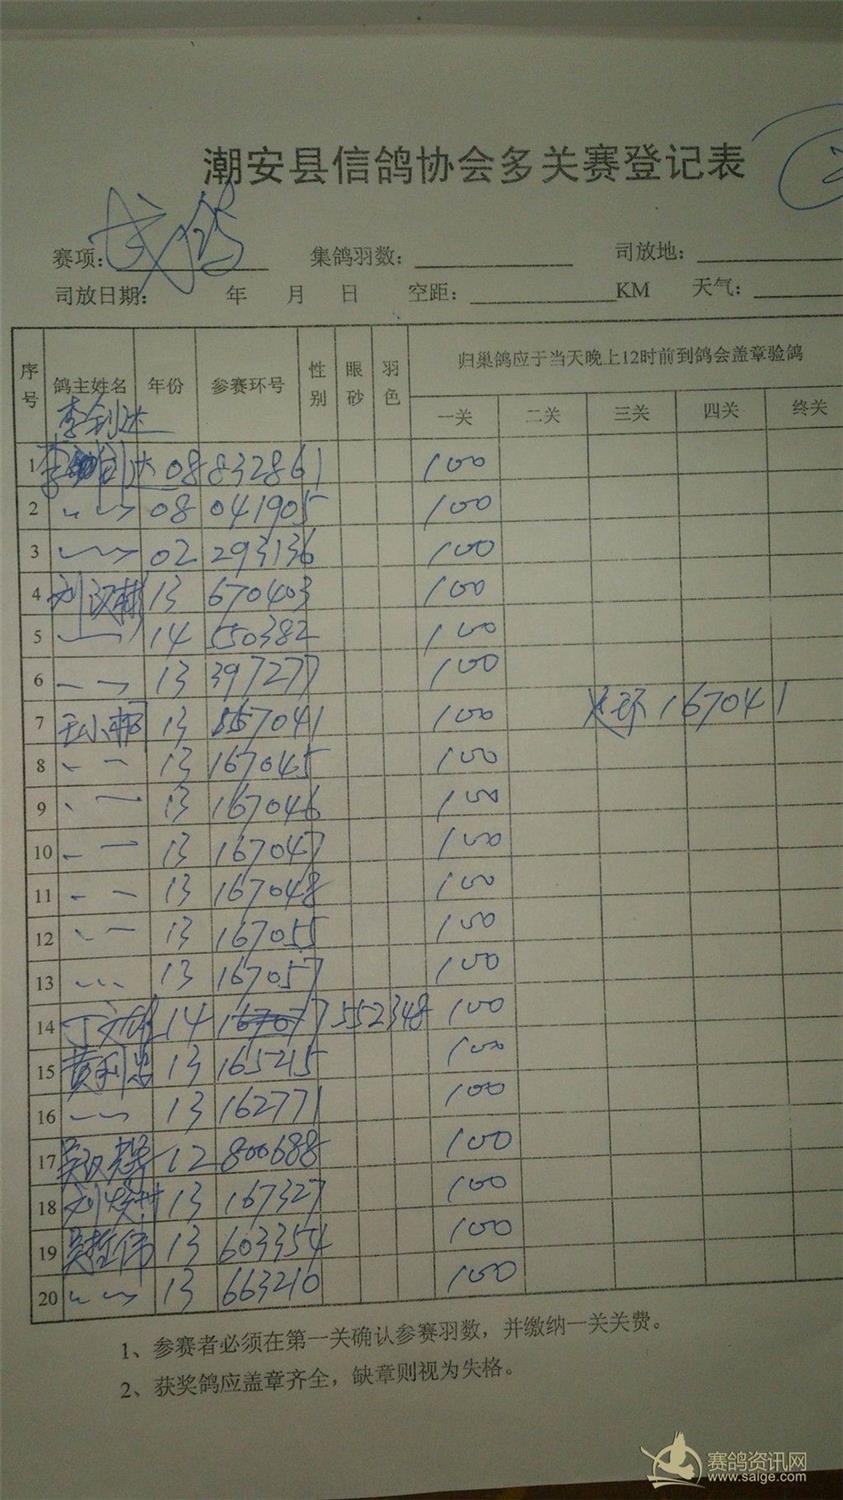 潮安县信鸽协会多关赛登记表
赛项: 成鸽 集鸽羽数: 司放地:
司放日期: 年 月 日 空距: KM 天气:
序号 鸽主姓名 年份 参赛环号 性别 眼砂 羽色 归巢鸽应于当天晚上12时前到鸽会盖章验鸽
一关 二关 三关 四关 终关
李剑达
1 08 832861 100
2 08 041905 100
3 02 293136 100
4 刘汉彬 13 670403 100
5 14 550382 100
6 13 397277 100
7 13 557041 100 167041
8 13 167045 100
9 13 167046 100
10 13 167047 100
11 13 167048 100
12 13 167055 100
13 13 167057 100
14 14 552348 100
15 黄利忠 13 165215 100
16 13 162771 100
17 12 800688 100
18 13 167327 100
19 13 603354 100
20 13 663210 100
1、参赛者必须在第一关确认参赛羽数，并缴纳一关关费。
2、获奖鸽应盖章齐全，缺章则视为失格。
赛鸽资讯网
www.saige.com